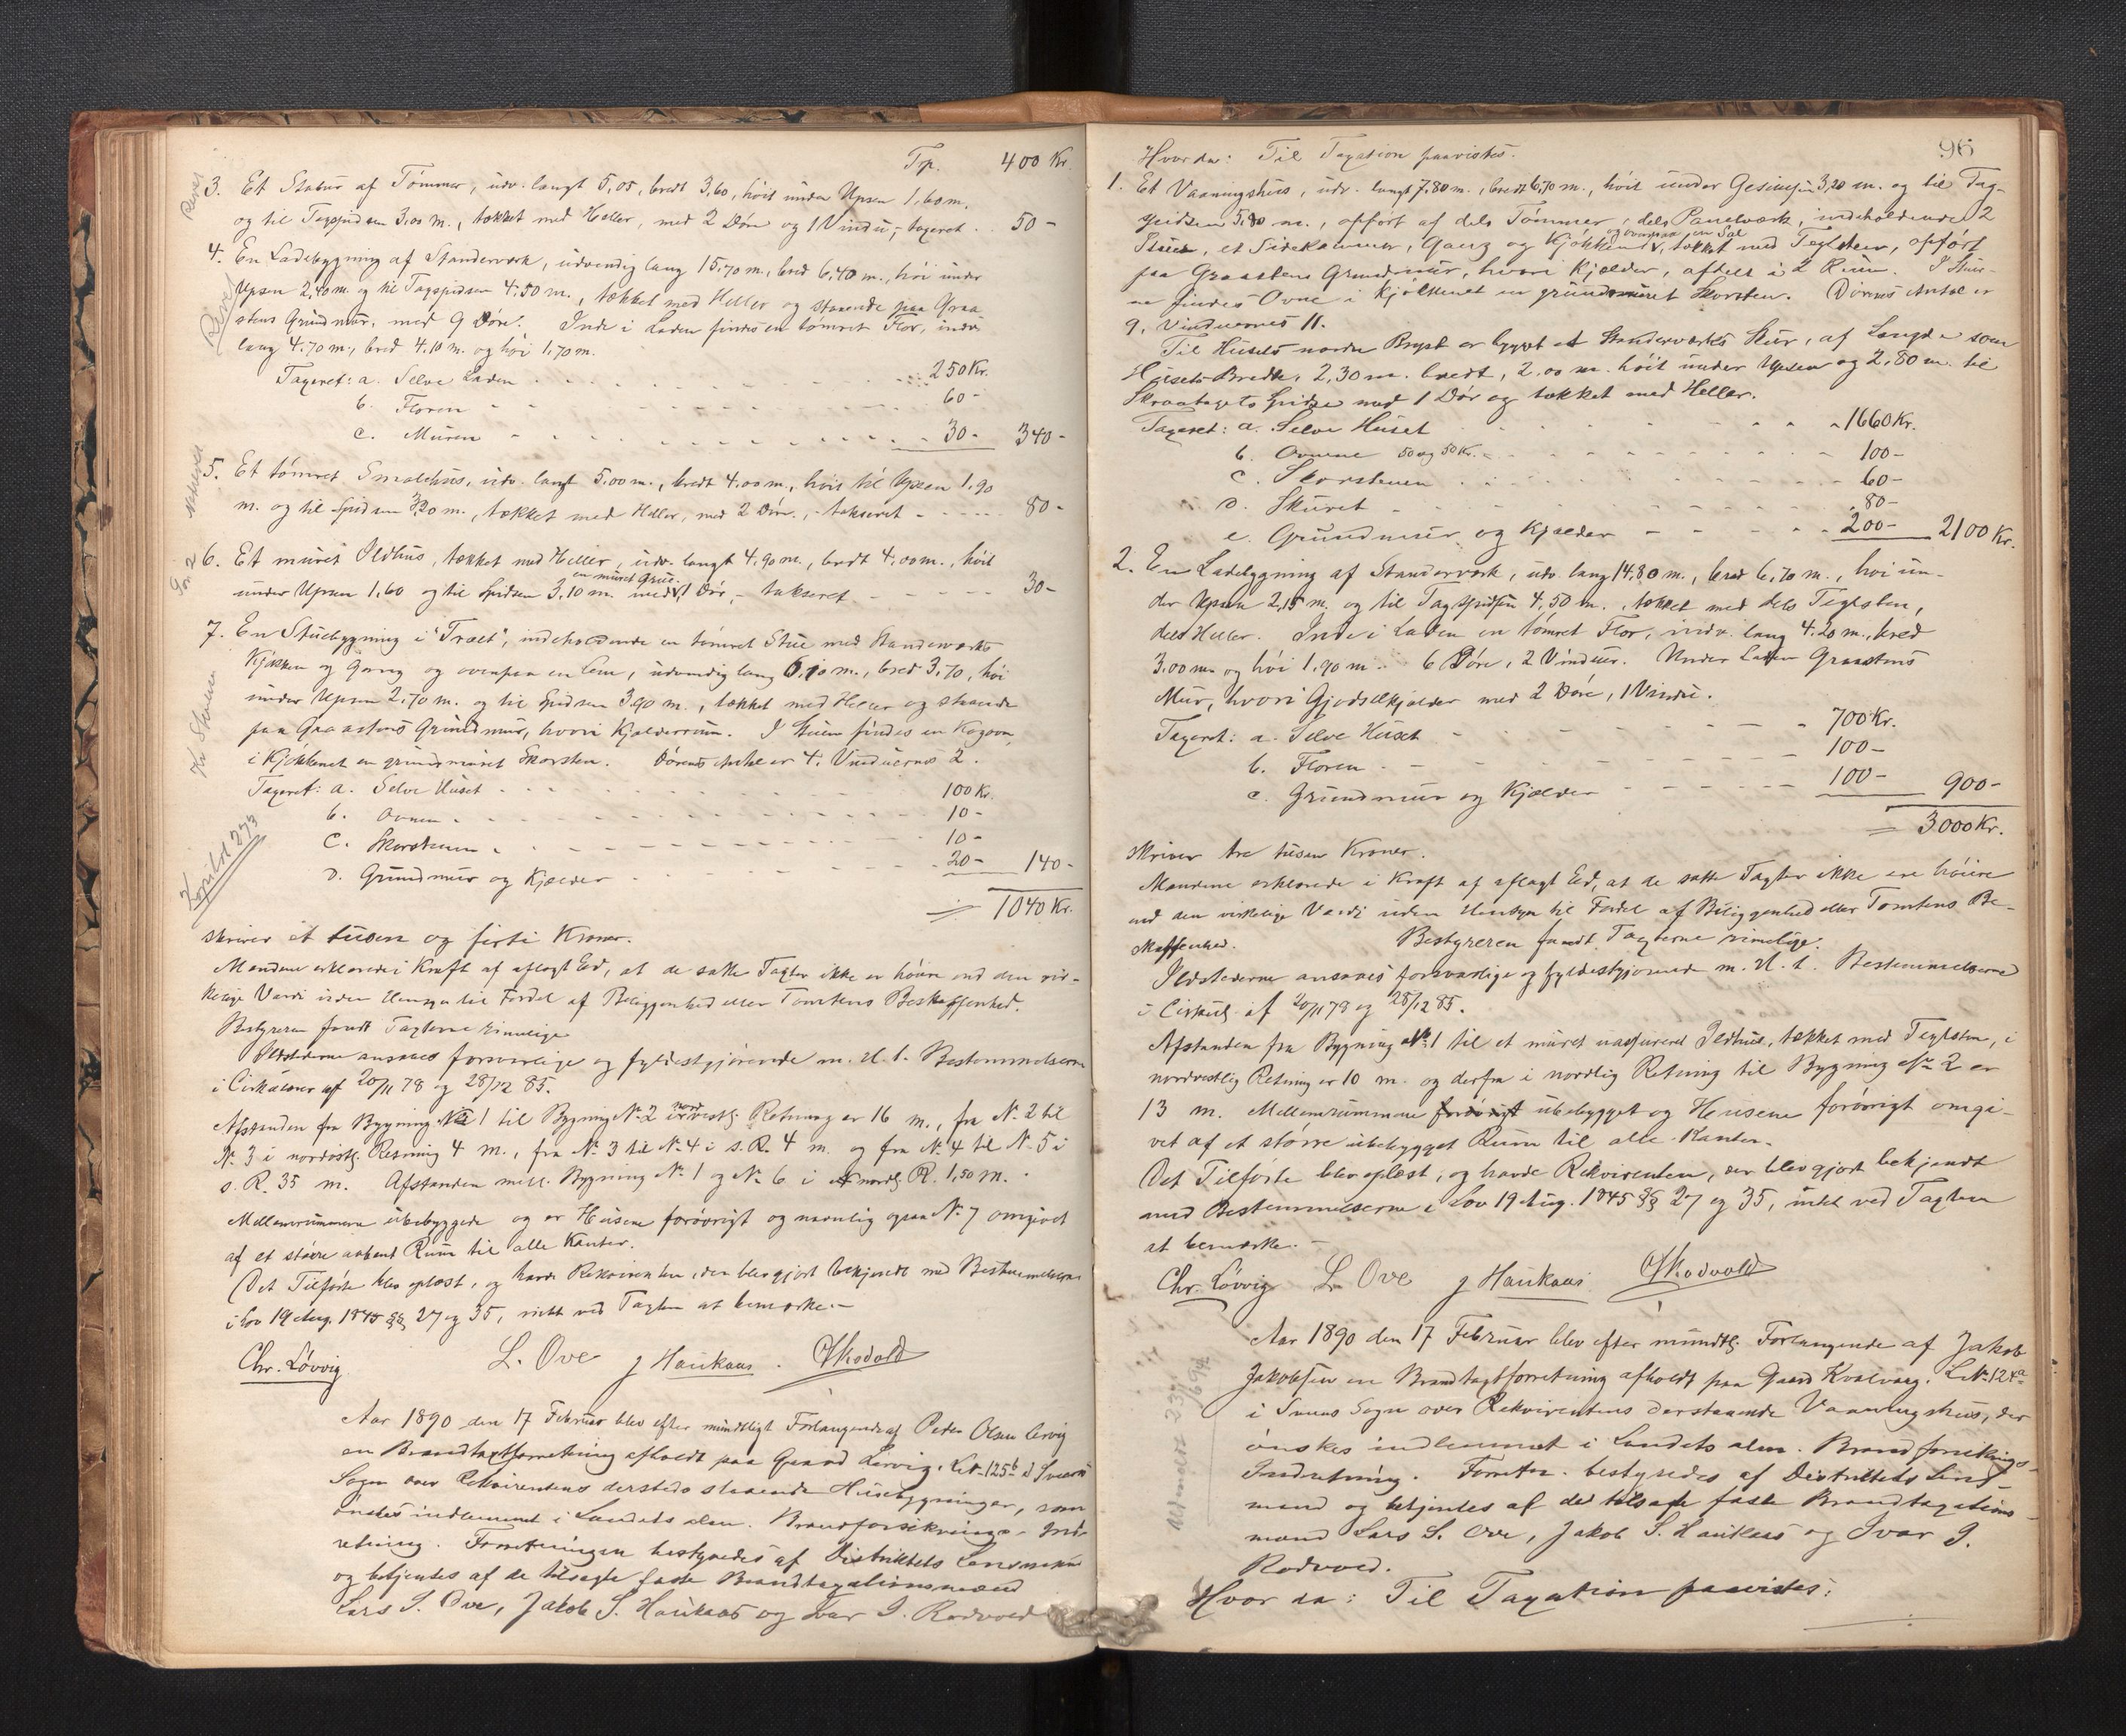 Trp. 400 Kr.
3. Et Stabur af Tømmer, udv. langt 5,05, bredt 3,60, høit under Upsen 1,60 m.
og til Tagspidsen 3,00 m., tækket med Heller, med 2 Døre og 1 Vindu, - taxeret . . 50 -
4. En Ladebygning af Standerværk, udvendig lang 15,70 m., bred 6,40 m., høi under
Upsen 2,40 m. og til Tagspidsen 4,50 m., tækket med Heller og staaende paa Graa-
stens Grundmur, med 9 Døre. Inde i Laden findes en tømret Flor, indv.
lang 4,70 m., bred 4,10 m. og høi 1,70 m.
Taxeret: a. Selve Laden . . . 250 Kr.
b. Floren - - - 60 -
c. Muren - - - 30 - 340 -
5. Et tømret Smalehus, udv. langt 5,00 m., bredt 4,00 m., høit til Upsen 1,90
m. og til Spidsen 3,20 m., tækket med Heller, med 2 Døre, - takseret - - - 80 -
6. Et muret Ildhus, tækket med Heller, udv. langt 4,90 m., bredt 4,00 m., høit
en muret Grue.
under Upsen 1,60 og til Spidsen 3,10 m. med 1 Dør, - takseret - - - 30 -
7. En Stuebygning i "Træet", indeholdende en tømret Stue med Standerværks
Kjøkken og Gang og ovenpaa en Lem, udvendig lang 6,10 m., bred 3,70, høi
under Upsen 2,70 m. og til Spidsen 3,90 m., tækket med Heller og staaende
paa Graastens Grundmur, hvori Kjælderrum. I Stuen findes en Kogovn,
i Kjøkkenet en grundmuret Skorsten. Dørenes Antal er 4. Vinduernes 2.
Taxeret: a. Selve Huset - - - 100 Kr.
b. Ovnen - - - 10 -
c. Skorstenen - - - 10 -
d. Grundmur og Kjælder - - - 20 - 140 -
= 1040 Kr.
skriver et tusen og firti Kroner.
Mændene erklærede i Kraft af aflagt Ed, at de satte Taxter ikke er høiere end den vir-
kelige Værdi uden Hensyn til Fordel af Beliggenhed eller Tomtens Beskaffenhed.
Bestyreren fandt Taxterne rimelige.
Ildstederne ansaaes forsvarlige og fyldestgjørende m. H. t. Bestemmelserne
i Cirkulærer af 20/11 78 og 28/12 85.
Afstanden fra Bygning No 1 til Bygning No 2 i nordvestlig Retning er 16 m., fra No 2 til
No 3 i nordøstlig Retning 4 m., fra No 3 til No 4 i s. R. 4 m. og fra No 4 til No 5 i
s. R. 35 m. Afstanden mell. Bygning No 1 og No 6 i nordlig R. 1,50 m.
Mellemrummene ubebyggede og er Husene forøvrigt og navnlig ogsaa No 7 omgivet
af et større aabent Rum til alle Kanter.
Det Tilførte blev oplæst, og havde Rekvirenten, der blev gjort bekjendt med Bestemmelserne
i Lov 19 Aug. 1845 §§ 27 og 35, intet ved Taxten at bemærke. -
Chr. Løvvig L. Ove J Haukaas . OSkodvold
Aar 1890 den 17 Februar blev efter mundtligt Forlangende af Peder Olsen Lervig
en Brandtaxtforretning afholdt paa Gaard Lervig. L. No 125b i Sveens
Sogn over Rekvirentens dersteds staaende Husebygninger, som
ønskes indlemmet i Landets alm. Brandforsikrings-Ind-
retning. Forretningen bestyredes af Distriktets Lensmand
og betjentes af de tilsagte faste Brandtaxationsmænd
Lars S. Ove, Jakob S. Haukaas og Ivar I. Rødvold
96
Hvorda: Til Taxation paavistes.
1. Et Vaaningshus, udv. langt 7,80 m., bredt 6,70 m., høit under Gesimsen 3,20 m. og til Tag-
spidsen 5,90 m., opført af dels Tømmer, dels Panelværk, indeholdende 2
og ovenpaa en Sal
Stuer, et Sidekammer, Gang og Kjøkken, tækket med Teglsten, opført
paa Graastens Grundmur, hvori Kjælder, aftelt i 2 Rum. I Stuer-
ne findes Ovne i Kjøkkenet en grundmuret Skorsten. Dørenes Antal er
9, Vinduernes 11.
Til Husets nordre Bryst er bygget et Standerværks Skur, af Længde som
Husets Bredde, 2,30 m. bredt, 2,00 m. høit under Upsen og 2,80 m. til
Skraatagets Spidse med 1 Dør og tækket med Heller.
Taxeret: a. Selve Huset - - - 1660 Kr.
b. Ovnene 50 og 50 Kr. - - - 100 -
c. Skorstenen - - - 60 -
d. Skuret - - - 80 -
e. Grundmur og Kjælder - - - 200 - 2100 Kr.
2. En Ladebygning af Standerværk, udv. lang 14,80 m., bred 6,70 m., høi un-
der Upsen 2,15 m. og til Tagspidsen 4,50 m., tækket med dels Teglsten,
dels Heller. Inde i Laden en tømret Flor, indv. lang 4,20 m., bred
3,00 m. og høi 1,90 m. 6 Døre, 2 Vinduer. Under Laden Graastens
Mur, hvori Gjødselkjælder med 2 Døre, 1 Vindu.
Taxeret: a. Selve Huset - - - 700 Kr.
b. Floren - - - 100 -
c. Grundmur og Kjælder - - - 100 - 900 -
= 3000 Kr.
skriver tre tusen Kroner.
Mændene erklærede i Kraft af aflagt Ed, at de satte Taxter ikke ere høiere
end den virkelige Værdi uden Hensyn til Fordel af Beliggenhed eller Tomtens Be-
skaffenhed. Bestyreren fandt Taxterne rimelige.
Ildstederne ansaaes forsvarlige og fyldestgjørende m. H. t. Bestemmelserne
i Cirkul. af 20/11 78 og 28/12 85.
Afstanden fra Bygning No 1 til et muret uassureret Ildhus, tækket med Teglsten, i
nordvestlig Retning er 10 m. og derfra i nordlig Retning til Bygning No 2 er
13 m. Mellemrummene forøvrigt ubebygget og Husene forøvrigt omgi-
vet af et større ubebygget Rum til alle Kanter.
Det Tilførte blev oplæst, og havde Rekvirenten, der blev gjort bekjendt
med Bestemmelserne i Lov 19 Aug. 1845 §§ 27 og 35, intet ved Taxten
at bemærke. -
Chr. Løvvig L. Ove J Haukaas OSkodvold
Aar 1890 den 17 Februar blev efter mundtlig Forlangende af Jakob
Jakobsen en Brandtaxtforretning afholdt paa Gaard Kvalvaag. L. No 124a
i Sveens Sogn over Rekvirentens derstaaende Vaaningshus, der
ønskes indlemmet i Landets alm. Brandforsikrings-
Indretning. Forretn. bestyredes af Distriktets Lens-
mand og betjentes af de tilsagte faste Brandtaxations-
mænd Lars S. Ove, Jakob S. Haukaas og Ivar I.
Rødvold.
Hvor da: Til Taxation paavistes: